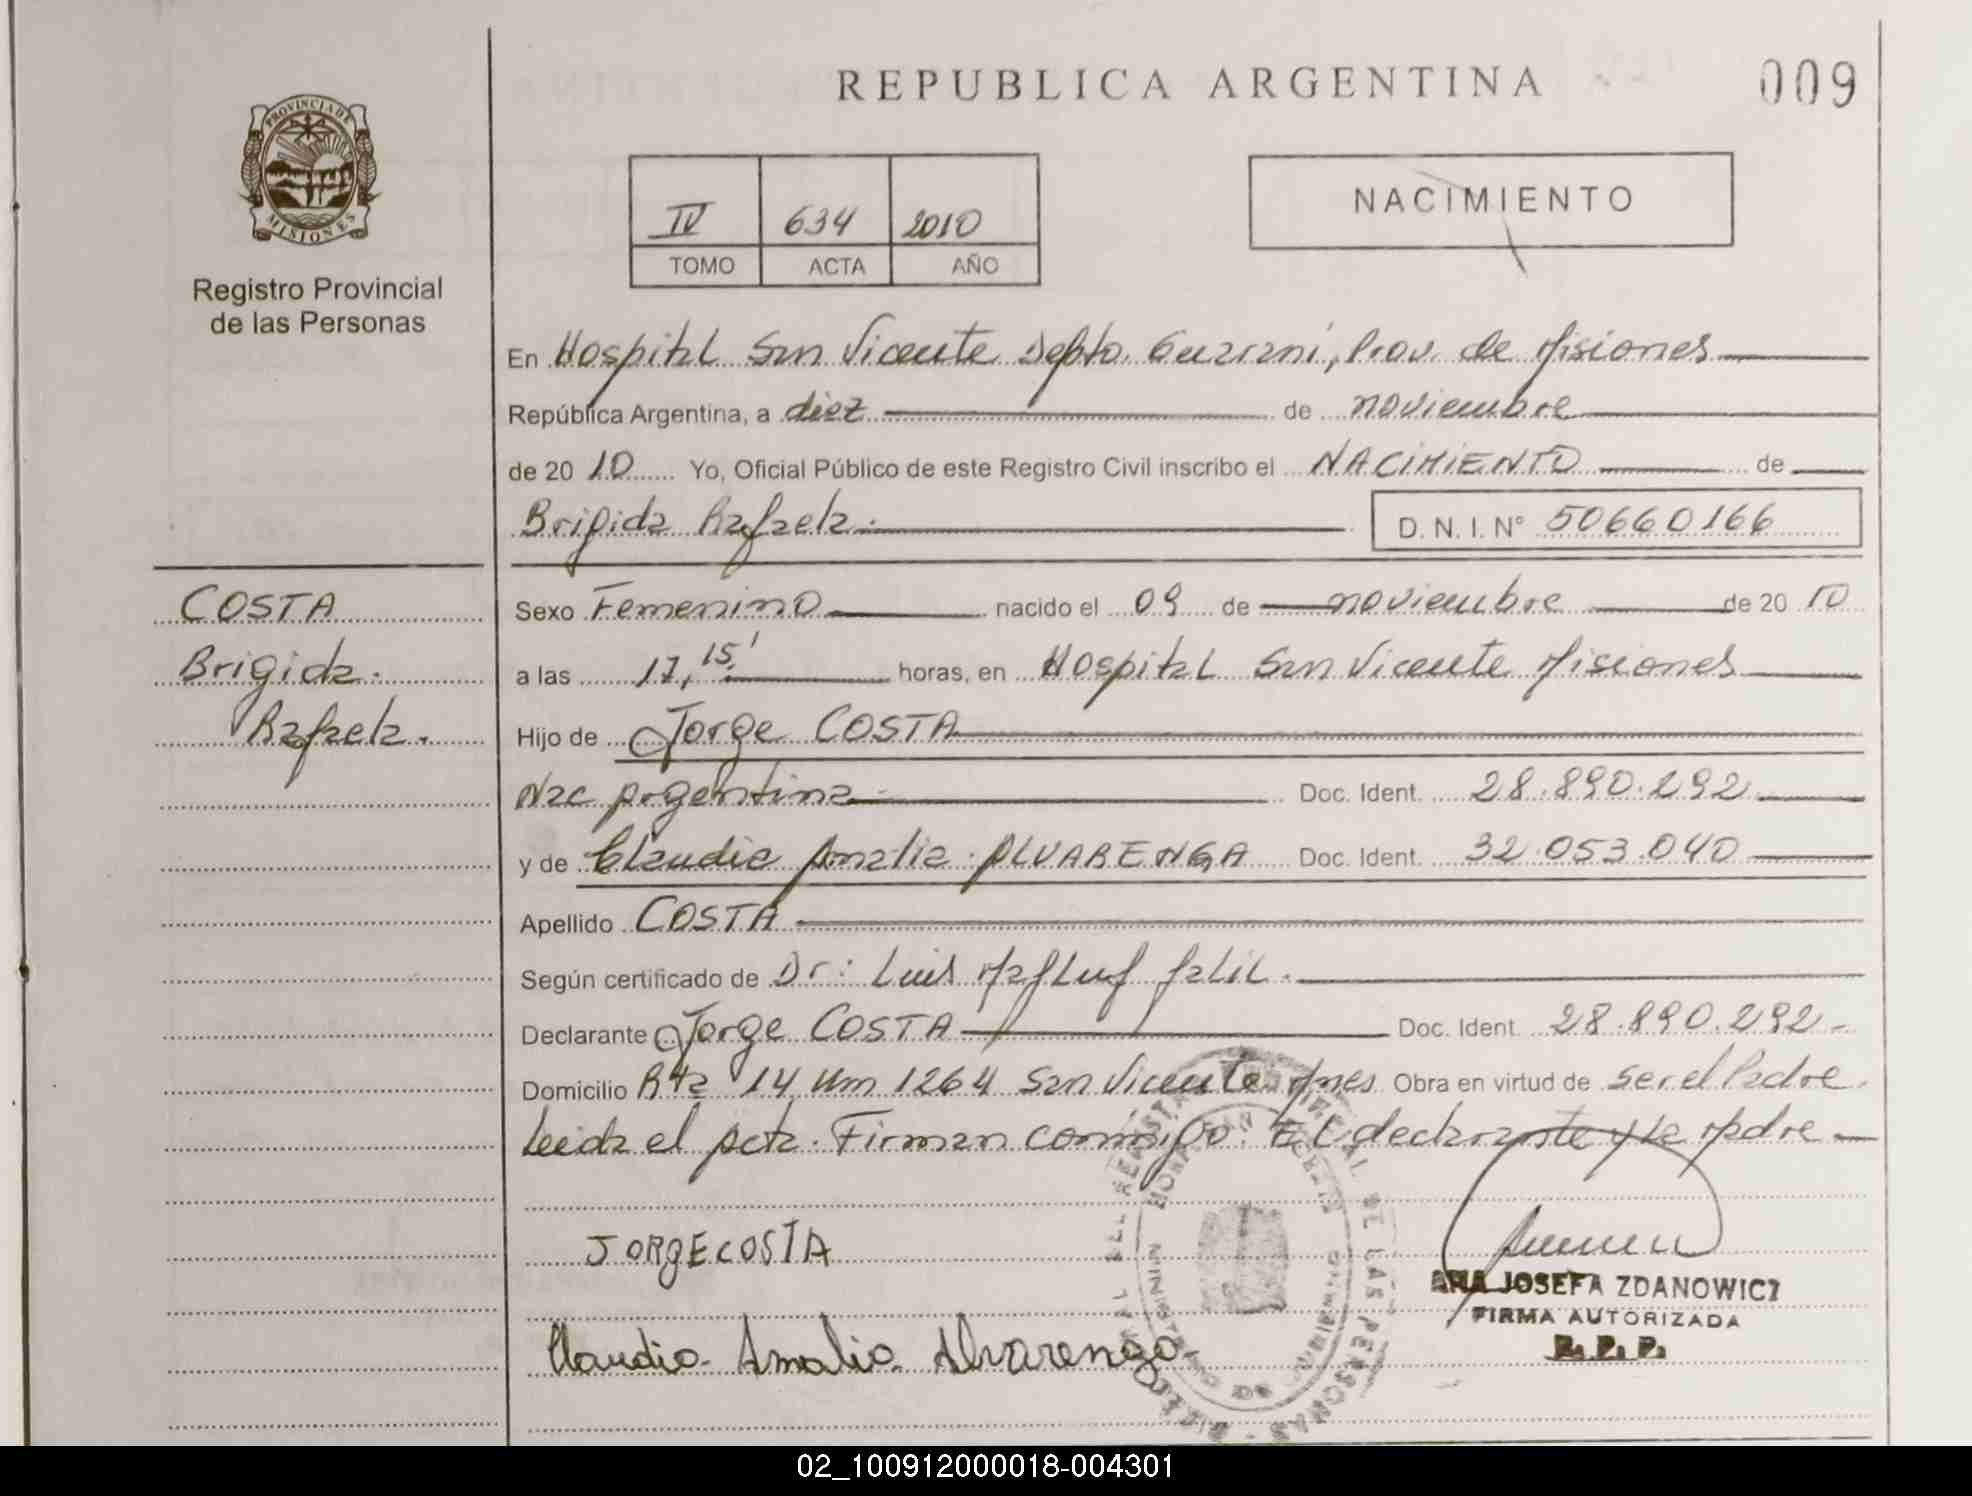 REPUBLICA ARGENTINA
009
PROVINCIA DE MISIONES
Registro Provincial
de las Personas
IV 634 2010
TOMO ACTA AÑO
NACIMIENTO
En Hospital San Vicente Depto. Guarani, Prov. de Misiones
República Argentina, a diez de noviembre
de 20 10 Yo, Oficial Público de este Registro Civil inscribo el NACIMIENTO de
Brigida Rafaela. D. N. I. N° 50660166
COSTA
Brigida.
Rafaela.
Sexo Femenino nacido el 09 de noviembre de 20 10
a las 17,15' horas, en Hospital San Vicente Misiones
Hijo de Jorge COSTA
Nac Argentina Doc. Ident. 28.890.292
y de Claudia Amalia ALVARENGA Doc. Ident. 32.053.040
Apellido COSTA
Según certificado de Dr: Luis Jalil.
Declarante Jorge COSTA Doc. Ident. 28.890.292-
Domicilio Rta 14 Km 1264 San Vicente Mnes Obra en virtud de ser el Padre.
Leida el Acta. Firman conmigo. El declarante y la Madre
JORGE COSTA
Claudia Amalia Alvarenga
ANA JOSEFA ZDANOWICZ
FIRMA AUTORIZADA
R. P. P.
DE LAS PERSONAS
02_100912000018-004301